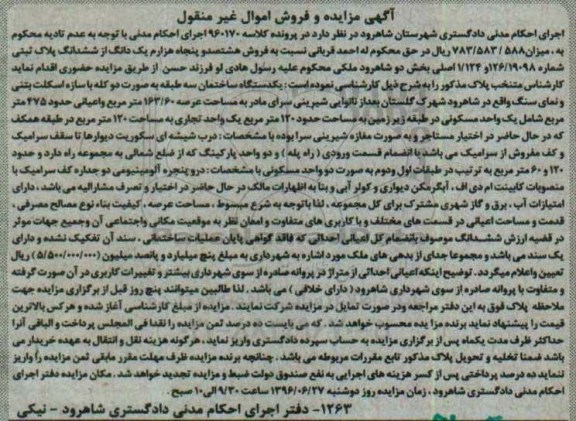 آگهی مزایده و فروش اموال غیر منقول
اجرای احکام مدنی دادگستری شهرستان شاهرود در نظر دارد در پرونده کلاسه ۹۶۰۱۷۰ اجرای احکام مدنی با توجه به عدم تادیه محکوم
به ، میزان ۷۸۳/۵۸۳/۵۸۸ ریال در حق محکوم له احمد قربانی نسبت به فروش هشتصدو پنجاه هزارم یک دانگ از ششدانگ پلاک ثبتی
شماره ۱۲۶/۱۹۰۹۸و ۱/۱۳۴ اصلی بخش دو شاهرود ملکی محکوم علیه رسول هادی لو فرزند حسن از طریق مزایده حضوری اقدام نماید
کارشناس منتخب پلاک مذکور را به شرح ذیل کارشناسی نموده است : یکدستگاه ساختمان سه طبقه به صورت دو کله با سازه اسکلت بتنی
و نمای سنگ واقع در شاهرود شهرک گلستان بعداز نانوایی شیرینی سرای مادر به مساحت عرصه ۱۶۳/۶۰ متر مربع واعیانی حدود ۴۷۵ متر
مربع شامل یک واحد مسکونی در طبقه زیر زمین به مساحت حدود ۱۲۰ متر مربع یک واحد تجاری به مساحت ۱۲۰ متر مربع در طبقه همکف
که در حال حاضر در اختیار مستاجر و به صورت مغازه شیرینی سرا بوده با مشخصات : درب شیشه ای سکوریت دیوارها تا سقف سرامیک
و کف مفروش از سرامیک می باشد با انضمام قسمت ورودی ( راه پله ) و دو واحد پارکینگ که از ضلع شمالی به مجموعه راه دارد و حدود
۱۲۰ و ۶۰ متر مربع به ترتیب در طبقات اول ودوم به صورت دو واحد مسکونی با مشخصات : درو پنجره آلومینیومی دو جداره کف سرامیک با
منصوبات کابینت ام دی اف ، آبگرمکن دیواری و کولر آبی و بنا به اظهارات مالک در حال حاضر در اختیار و تصرف مشارالیه می باشد . دارای
امتیازات آب ، برق و گاز شهری مشترک برای کل مجموعه . لذا باتوجه به شرح مبسوط ، مساحت عرصه ، کیفیت بناء نوع مصالح مصرفی ،
قدمت و مساحت اعیانی در قسمت های مختلف و با کاربری های متفاوت و امعان نظر به موقعیت مکانی واجتماعی آن وجمیع جهات موثر
در قضیه ارزش ششدانگ موصوف بانضمام کل اعیانی احداثی که فاقد گواهی پایان عملیات ساختمانی ، سند آن تفکیک نشده و دارای
یک سند می باشد و مجموعا جدای از بدهی های ملک مورد اشاره به شهرداری به مبلغ پنج میلیارد و پانصد میلیون (۵/۵۰۰/۰۰۰/۰۰۰) ریال
تعیین واعلام میگردد . توضیح اینکه اعیانی احداثی از متراژ در پروانه صادره از سوی شهرداری بیشتر و تغییرات کاربری در آن صورت گرفته
و متفاوت با پروانه صادره از سوی شهرداری شاهرود ( دارای خلافی ) می باشد . لذا طالبین میتوانند پنج روز قبل از برگزاری مزایده جهت
ملاحظه پلاک فوق به این دفتر مراجعه ودر صورت تمایل در مزایده شرکت نمایند . مزایده از مبلغ کارشناسی آغاز شده و هر کس بالاترین
قیمت را پیشنهاد نماید برنده مزایده محسوب خواهد شد . که می بایست ده درصد ثمن مزایده را نقدا فی المجلس پرداخت و الباقی آنرا
حداکثر ظرف مدت یکماه پس از برگزاری مزایده به حساب سپرده دادگستری واریز نماید . هرگونه هزینه نقل و انتقال به عهده خریدار می
باشد ضمنا تخلیه و تحویل پلاک مذکور تابع مقررات مربوطه می باشد . چنانچه برنده مزایده ظرف مهلت مقرر مابقی ثمن مزایده را واریز
ننماید ده درصد پرداختی پس از کسر هزینه های اجرایی به نفع صندوق دولت ضبط و مزایده تجدید خواهد شد . مکان مزایده دفتر اجرای
احکام مدنی دادگستری شاهرود ، زمان مزایده روز دوشنبه ۱۳۹۶/۰۶/۲۷ ساعت ۹/۳۰ الی ۱۰ صبح .
۱۲۶۳- دفتر اجرای احکام مدنی دادگستری شاهرود - نیکی